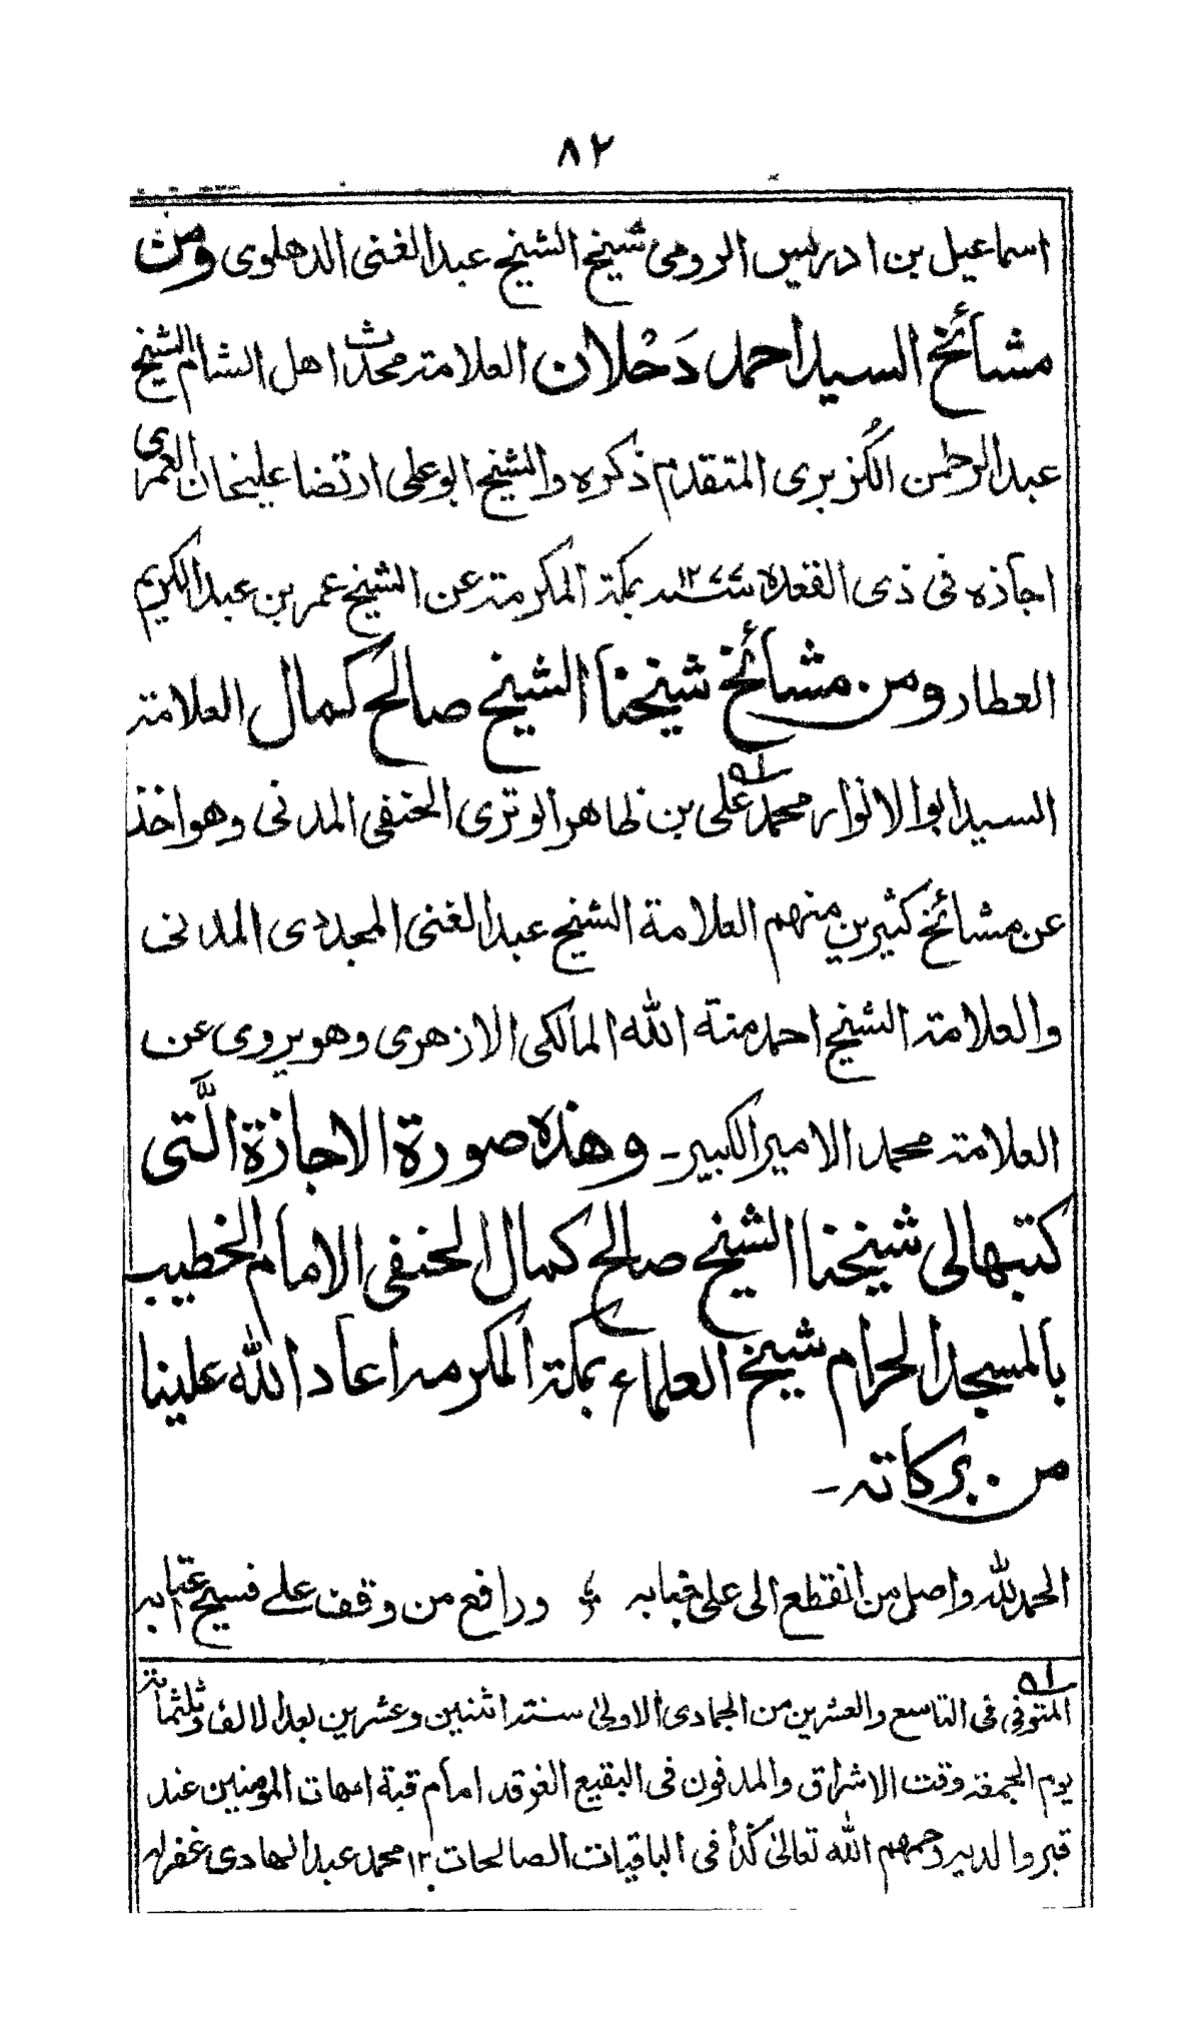 ٨٢
اسماعيل بن ادريس الرومى شيخ الشيخ عبد الغنى الدهلوى ومن
مشائخ السيد احمد دَحْلان العلامة محدث اهل الشام الشيخ
عبد الرحمن الكُزبرى المتقدم ذكره والشيخ ابو على ارتضا عليخان العمرى
اجازه فى ذى القعدة سنة ١٢٧٧ بمكة المكرمة عن الشيخ عمر بن عبد الكريم
العطار ومن مشائخ شيخنا الشيخ صالح كمال العلامة
السيد ابو الانوار محمد على بن ظاهر الوترى الحنفى المدنى وهو اخذ
عن مشائخ كثيرين منهم العلامة الشيخ عبد الغنى المجددى المدنى
والعلامة الشيخ احمد منة الله المالكى الازهرى وهو يروى عن
العلامة محمد الامير الكبير۔ وهذه صورة الاجازة الَّتى
كتبها لى شيخنا الشيخ صالح كمال الحنفى الامام الخطيب
بالمسجد الحرام شيخ العلماء بمكة المكرمه اعاد الله علينا
من بركاته۔
الحمد لله واصل من انقطع الى على جنابه ورافع من وقف علے فسيح عتابه
المتوفى فى التاسع والعشرين من الجمادى الاولى سنة اثنين وعشرين بعد الالف وثلثمائة
يوم الجمعة وقت الاشراق والمدفون فى البقيع الغرقد امام قبة امهات المومنين عند
قبر والديه رحمهم الله تعالى كذا فى الباقيات الصالحات ١٢ محمد عبد الهادى غفرله